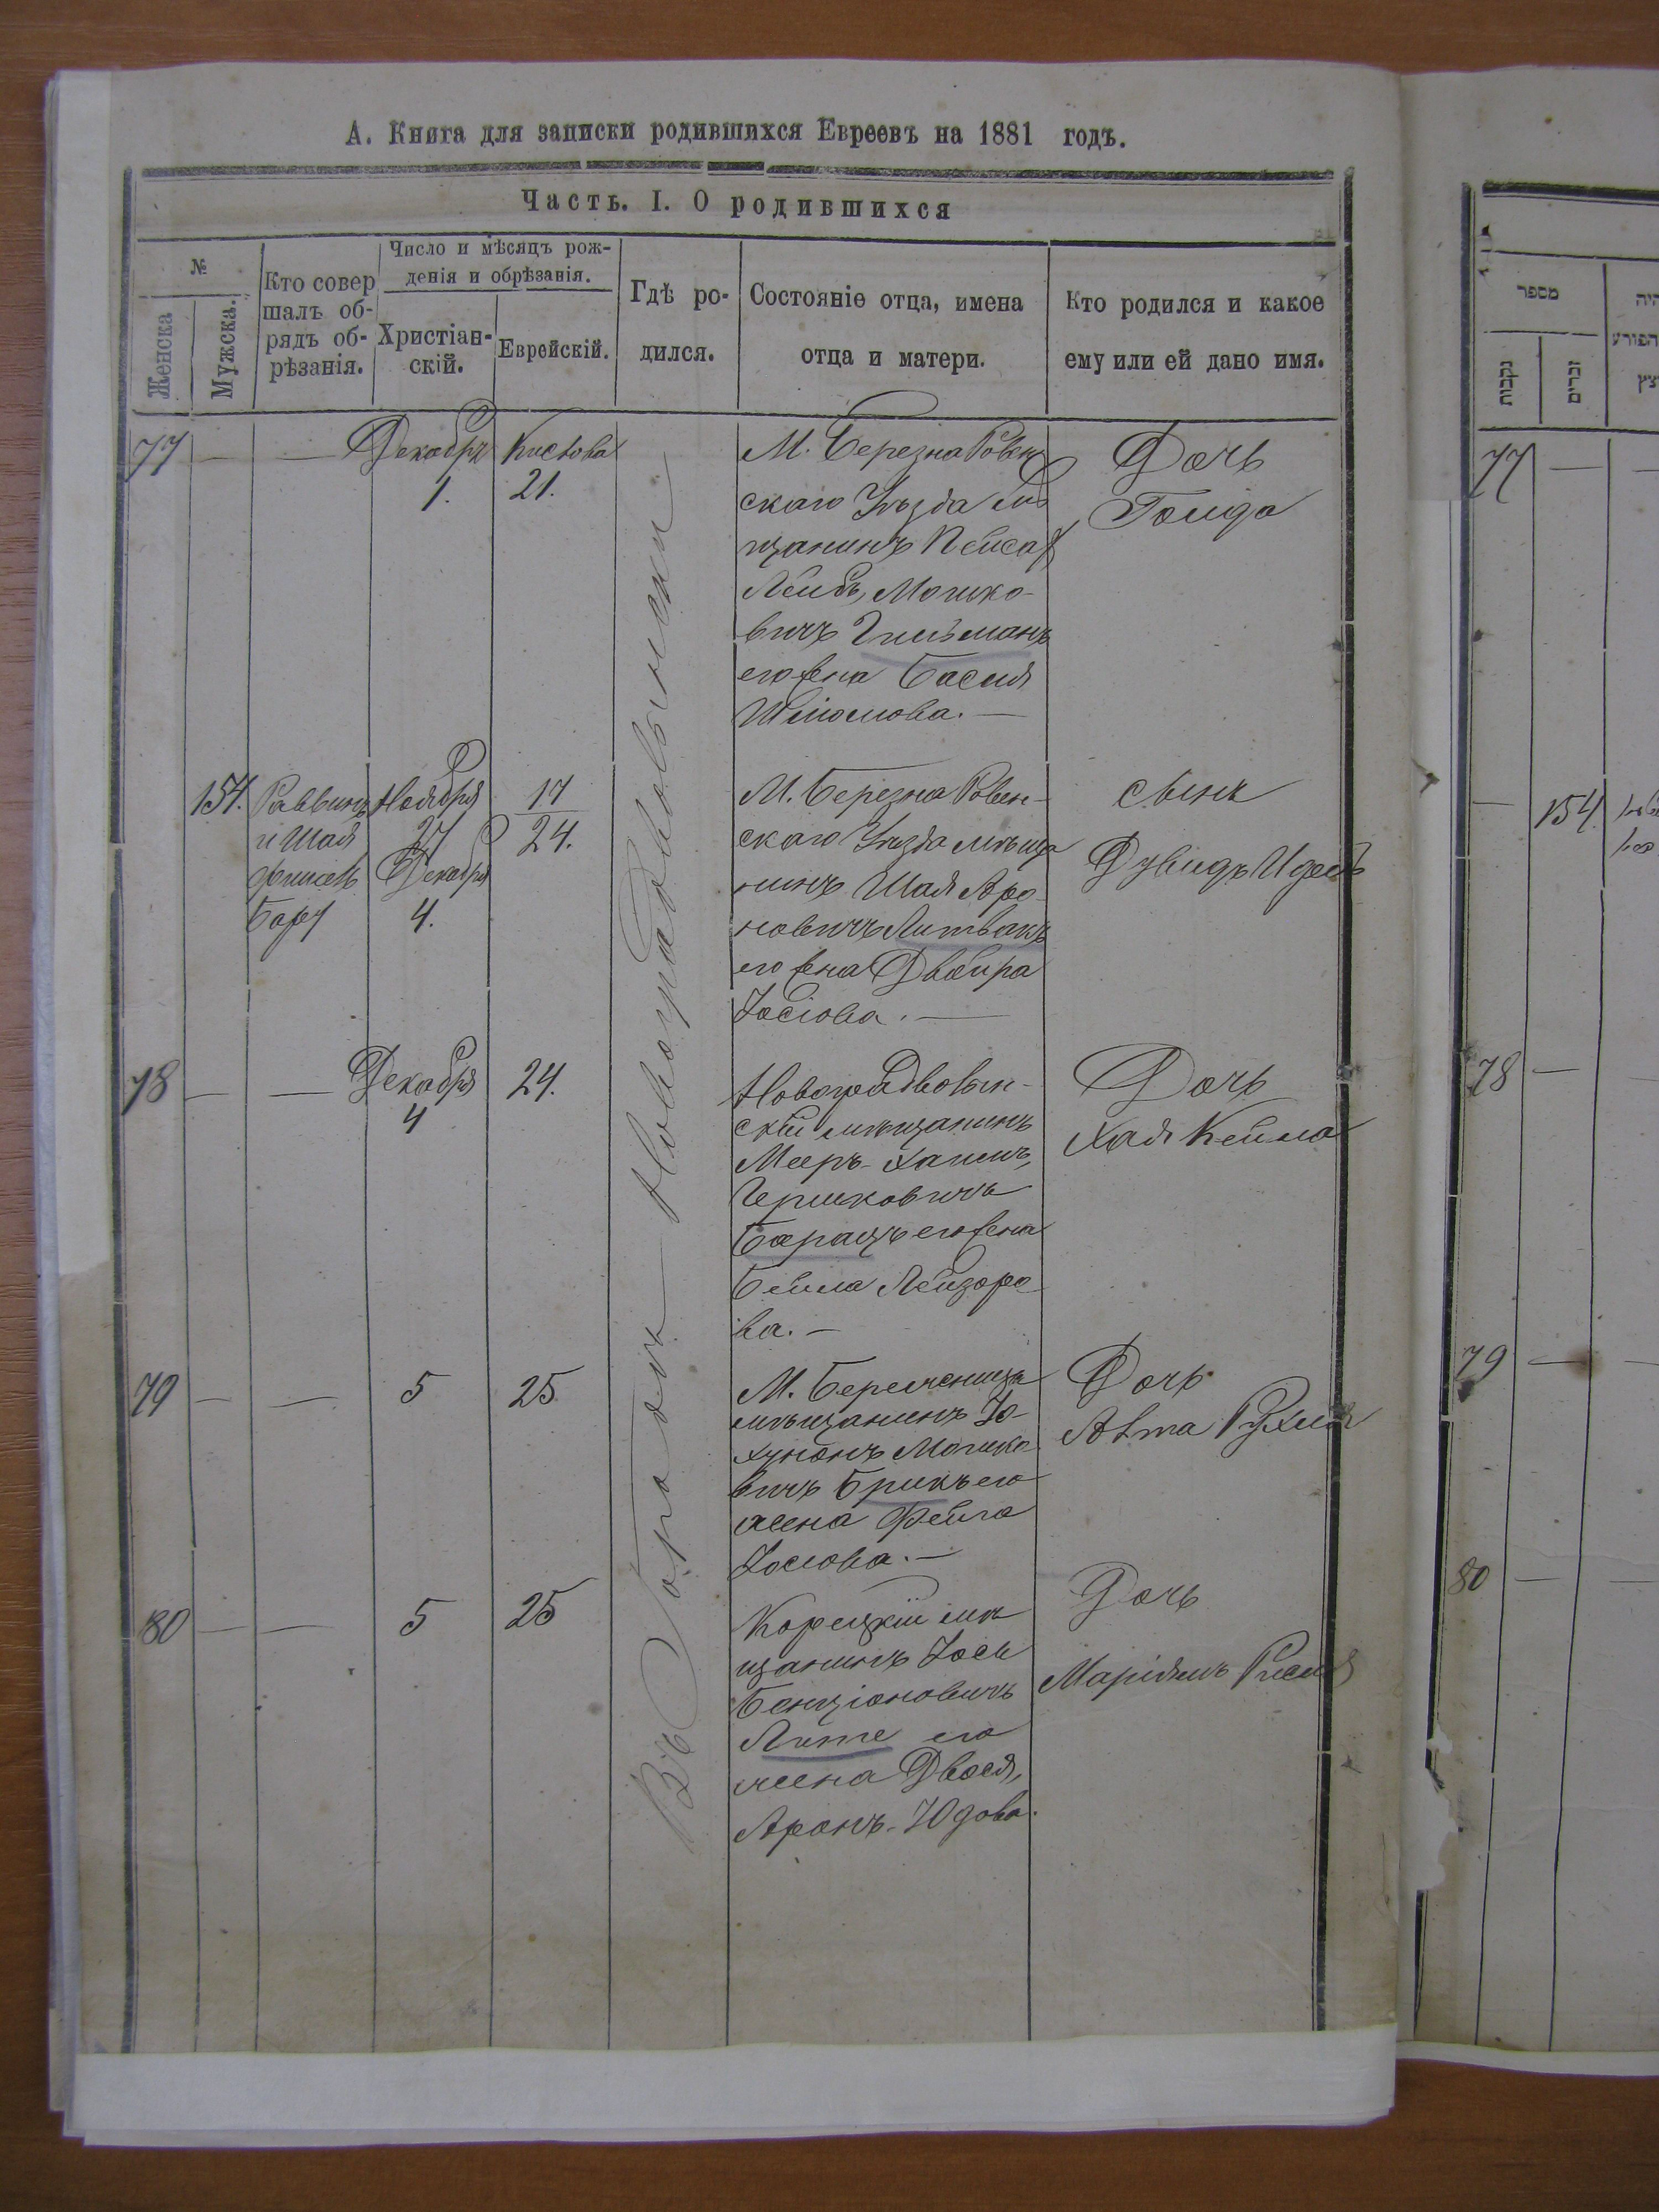 А. Книга для записки родившихся Евреевъ на 1881 годъ.
Часть. I. О родившихся
№
Женска
Мужска.
Кто совер
шалъ об-
рядъ об-
рѣзанія.
Число и мѣсяцъ рож-
денія и обрѣзанія.
Христіан-
скій.
Еврейскій.
Гдѣ ро-
дился.
Состояніе отца, имена
отца и матери.
Кто родился и какое
ему или ей дано имя.
Въ Городѣ Новоградволынски
77
Декабря
1.
Кислова
21.
М. Березна Ровен
скаго Уѣзда мѣ
щанинъ Пейсах
Лейбъ Мошко-
вичъ
его жена Бася
Шліомова.
Дочь
154.
Раввинъ
и Шая
Ноября
27
Декабря
4.
17
24.
М. Березна Ровен-
скаго Уѣзда мѣща
нинъ Шая Аро
новичъ Литвакъ
его жена Двойра
Іосіова.
сынъ
Дувидъ Идель
78
Декабря
4
24.
Новоградволын-
скій мѣщанинъ
Мееръ-Хаимъ
Гершковичъ
Барацъ его жена
Бейла Лейзоро
ва.
Дочь
Хая Кейла
79
5
25
М.
мѣщанинъ Іо-
хунонъ Мошко
вичъ Брикъ его
жена Фейга
Іосіова.
Дочь
Рухля
80
5
25
Корецкій мѣ
щанинъ Іось
Бенціоновичъ
его
жена Двося
Аронъ-Юдова.
Дочь
Маріямъ
מספר
נקבות
זכרים
77
154
78
79
80